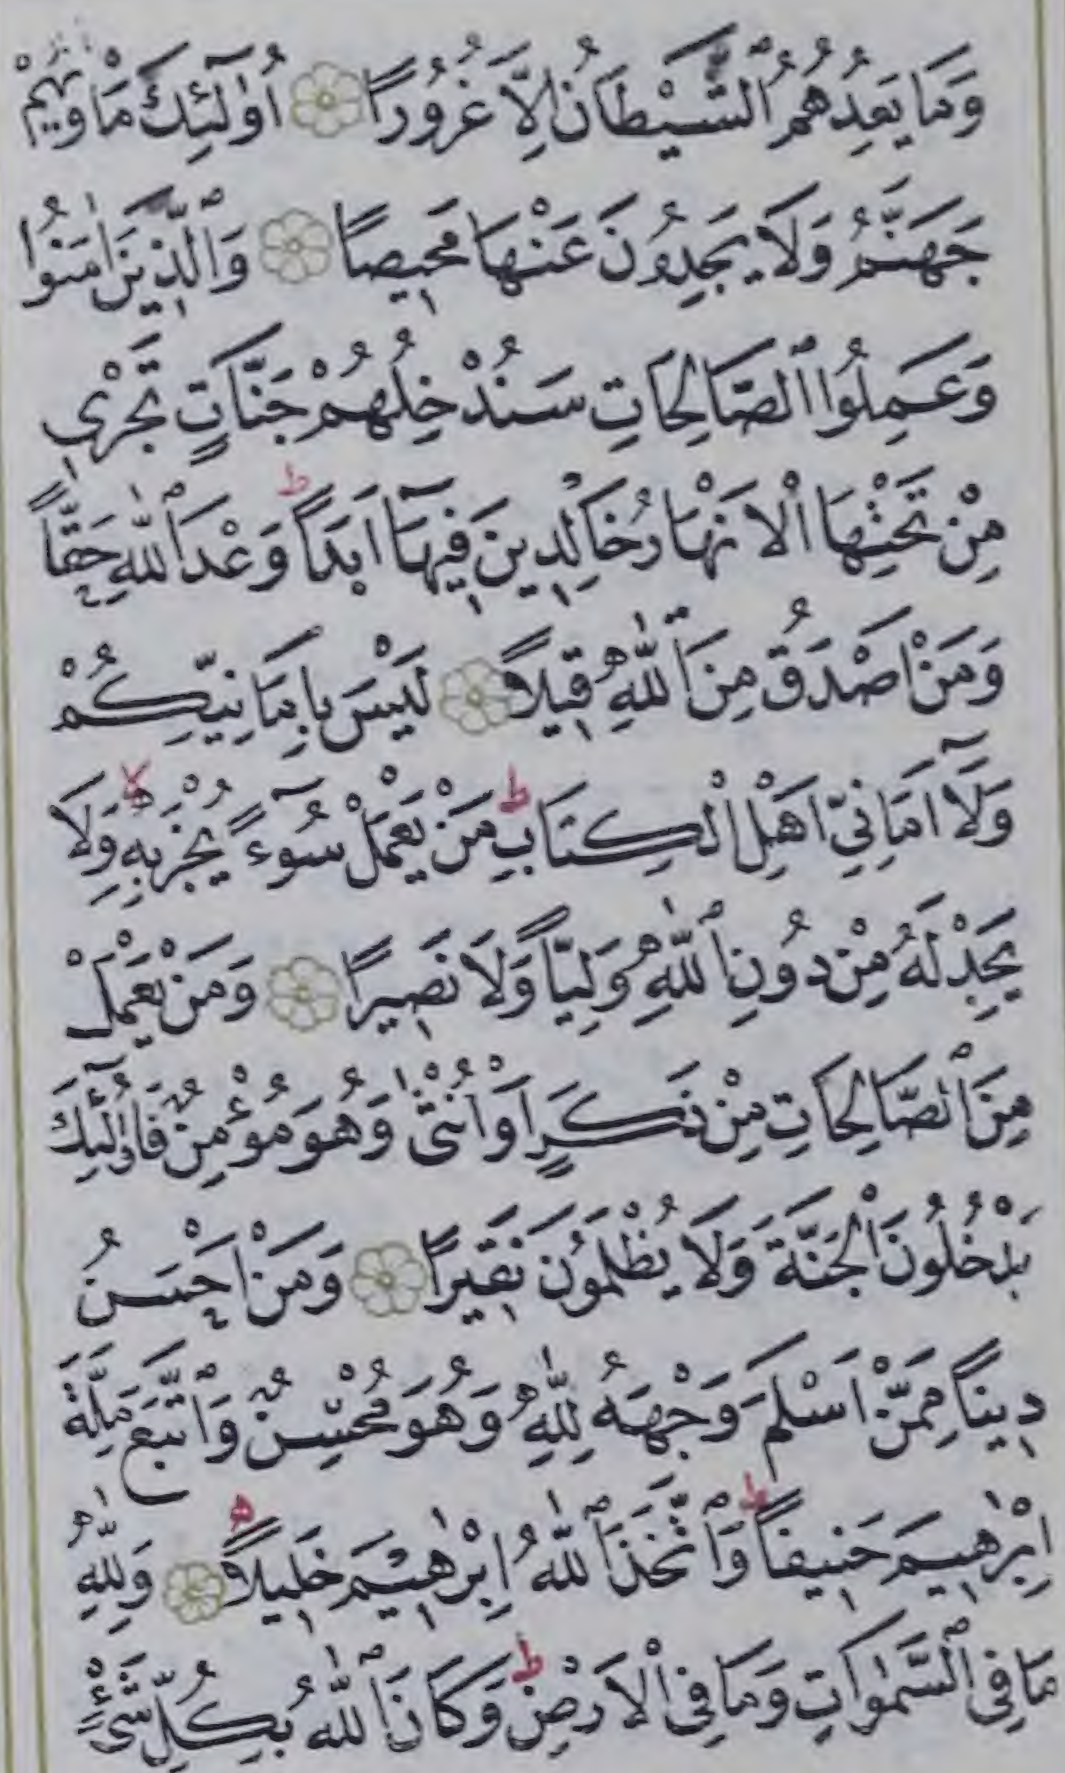 وَمَا يَعِدُهُمُ ٱلشَّيْطَانُ اِلَّا غُرُورًا ۝ اُو۬لٰٓئِكَ مَأْوٰيهُمْ
جَهَنَّمُ وَلَا يَجِدُونَ عَنْهَا مَحِيصًا ۝ وَٱلَّذِينَ اٰمَنُوا
وَعَمِلُوا ٱلصَّالِحَاتِ سَنُدْخِلُهُمْ جَنَّاتٍ تَجْرِي
مِنْ تَحْتِهَا ٱلْاَنْهَارُ خَالِدِينَ فِيهَآ اَبَدًا ۜ وَعْدَ ٱللّٰهِ حَقًّا
وَمَنْ اَصْدَقُ مِنَ ٱللّٰهِ قِيلًا ۝ لَيْسَ بِاَمَانِيِّكُمْ
وَلَآ اَمَانِيِّ اَهْلِ ٱلْكِتَابِ ط مَنْ يَعْمَلْ سُوٓءًا يُجْزَ بِهِ لا وَلَا
يَجِدْ لَهُ مِنْ دُونِ ٱللّٰهِ وَلِيًّا وَلَا نَصِيرًا ۝ وَمَنْ يَعْمَلْ
مِنَ ٱلصَّالِحَاتِ مِنْ ذَكَرٍ اَوْ اُنْثٰى وَهُوَ مُؤْمِنٌ فَاُو۬لٰٓئِكَ
يَدْخُلُونَ ٱلْجَنَّةَ وَلَا يُظْلَمُونَ نَقِيرًا ۝ وَمَنْ اَحْسَنُ
دِينًا مِمَّنْ اَسْلَمَ وَجْهَهُ لِلّٰهِ وَهُوَ مُحْسِنٌ وَٱتَّبَعَ مِلَّةَ
اِبْرٰهِيمَ حَنِيفًا ط وَٱتَّخَذَ ٱللّٰهُ اِبْرٰهِيمَ خَلِيلًا ۝ وَلِلّٰهِ
مَا فِي ٱلسَّمٰوَاتِ وَمَا فِي ٱلْاَرْضِ ط وَكَانَ ٱللّٰهُ بِكُلِّ شَيْءٍ